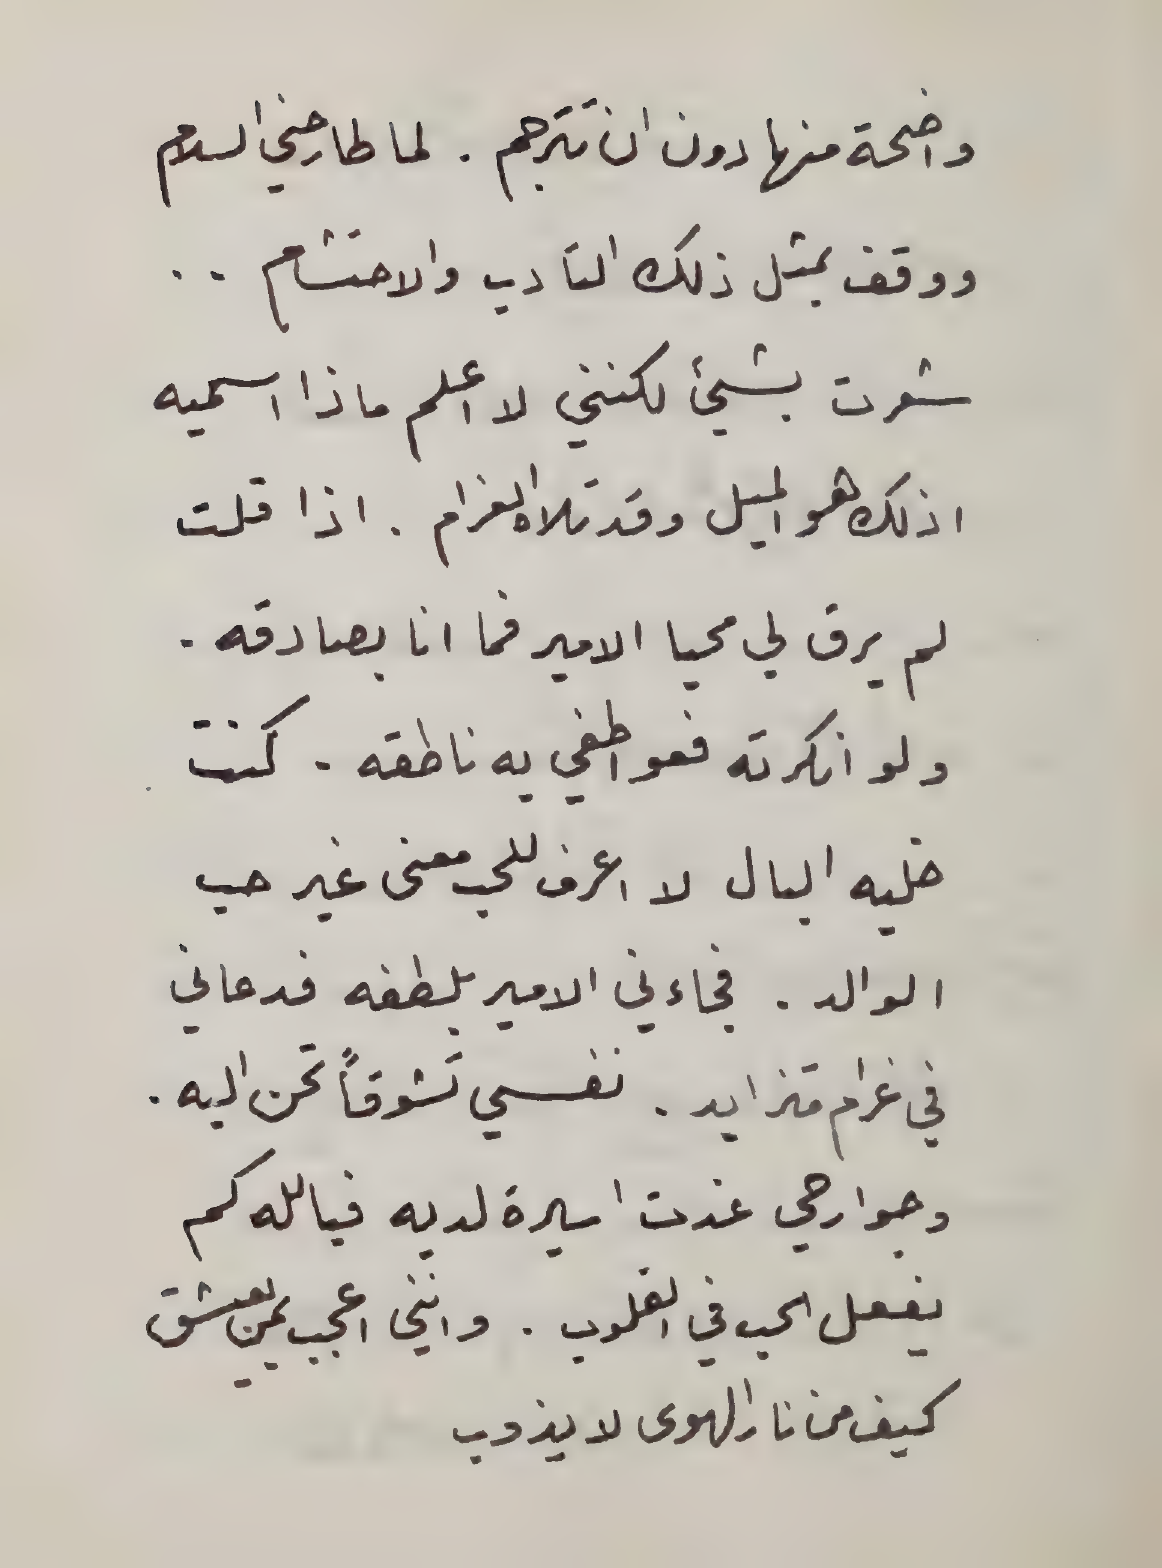 واضحة منها دون ان تترجم . لما طارحني السلام
ووقف بمثل ذلك التادب والاحتشام . . .
شعرت بشيئ لكنني لا اعلم ماذا اسميه
اذلك هو الميل وقد تلاه الغرام . اذا قلت
لم يرق لي محيا الامير فما انا بصادقه .
ولو انكرته فعواطفي به ناطقه . كنت
خليه البال لا اعرف للحب معنى غير حب
الوالد . فجاءني الامير بلطفه فدعاني
في غرام متزايد . نفسي تشوقاً تحن اليه .
وجوارحي غدت اسيرة لديه فيالله كم
يفعل الحب في القلوب . وانني اعجب بمن يعشق
كيف من نار الهوى لا يذوب